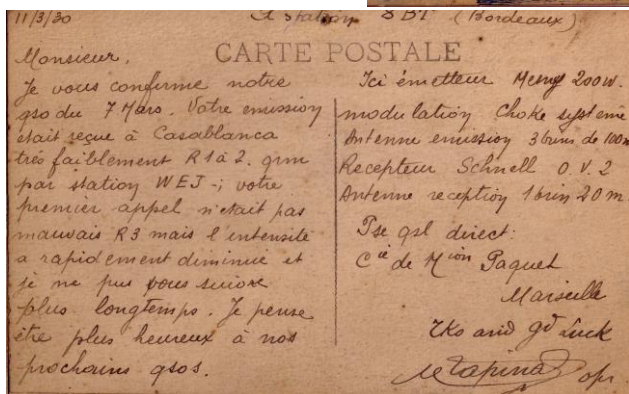 11/3/30
A station 8BT (Bordeaux)
CARTE POSTALE
Monsieur.
Je vous confirme notre
qso du 7 Mars. Votre emission
etait reçue à Casablanca
très faiblement R1 à 2. qrm
par station WEJ -; votre
premier appel n'etait pas
mauvais R3 mais l'intensité
a rapidement diminué et
je ne pus vous suivre
plus longtemps. Je pense
être plus heureux à nos
prochains qsos.
Ici émetteur Mesny 200w.
modulation Choke systeme
Antenne emission 3 brins de 100m
Recepteur Schnell O.V.2
Antenne reception 1 brin 20m
Pse qsl direct:
Cie de Nion Paquet
Marseille
Tks and gd Luck
opr